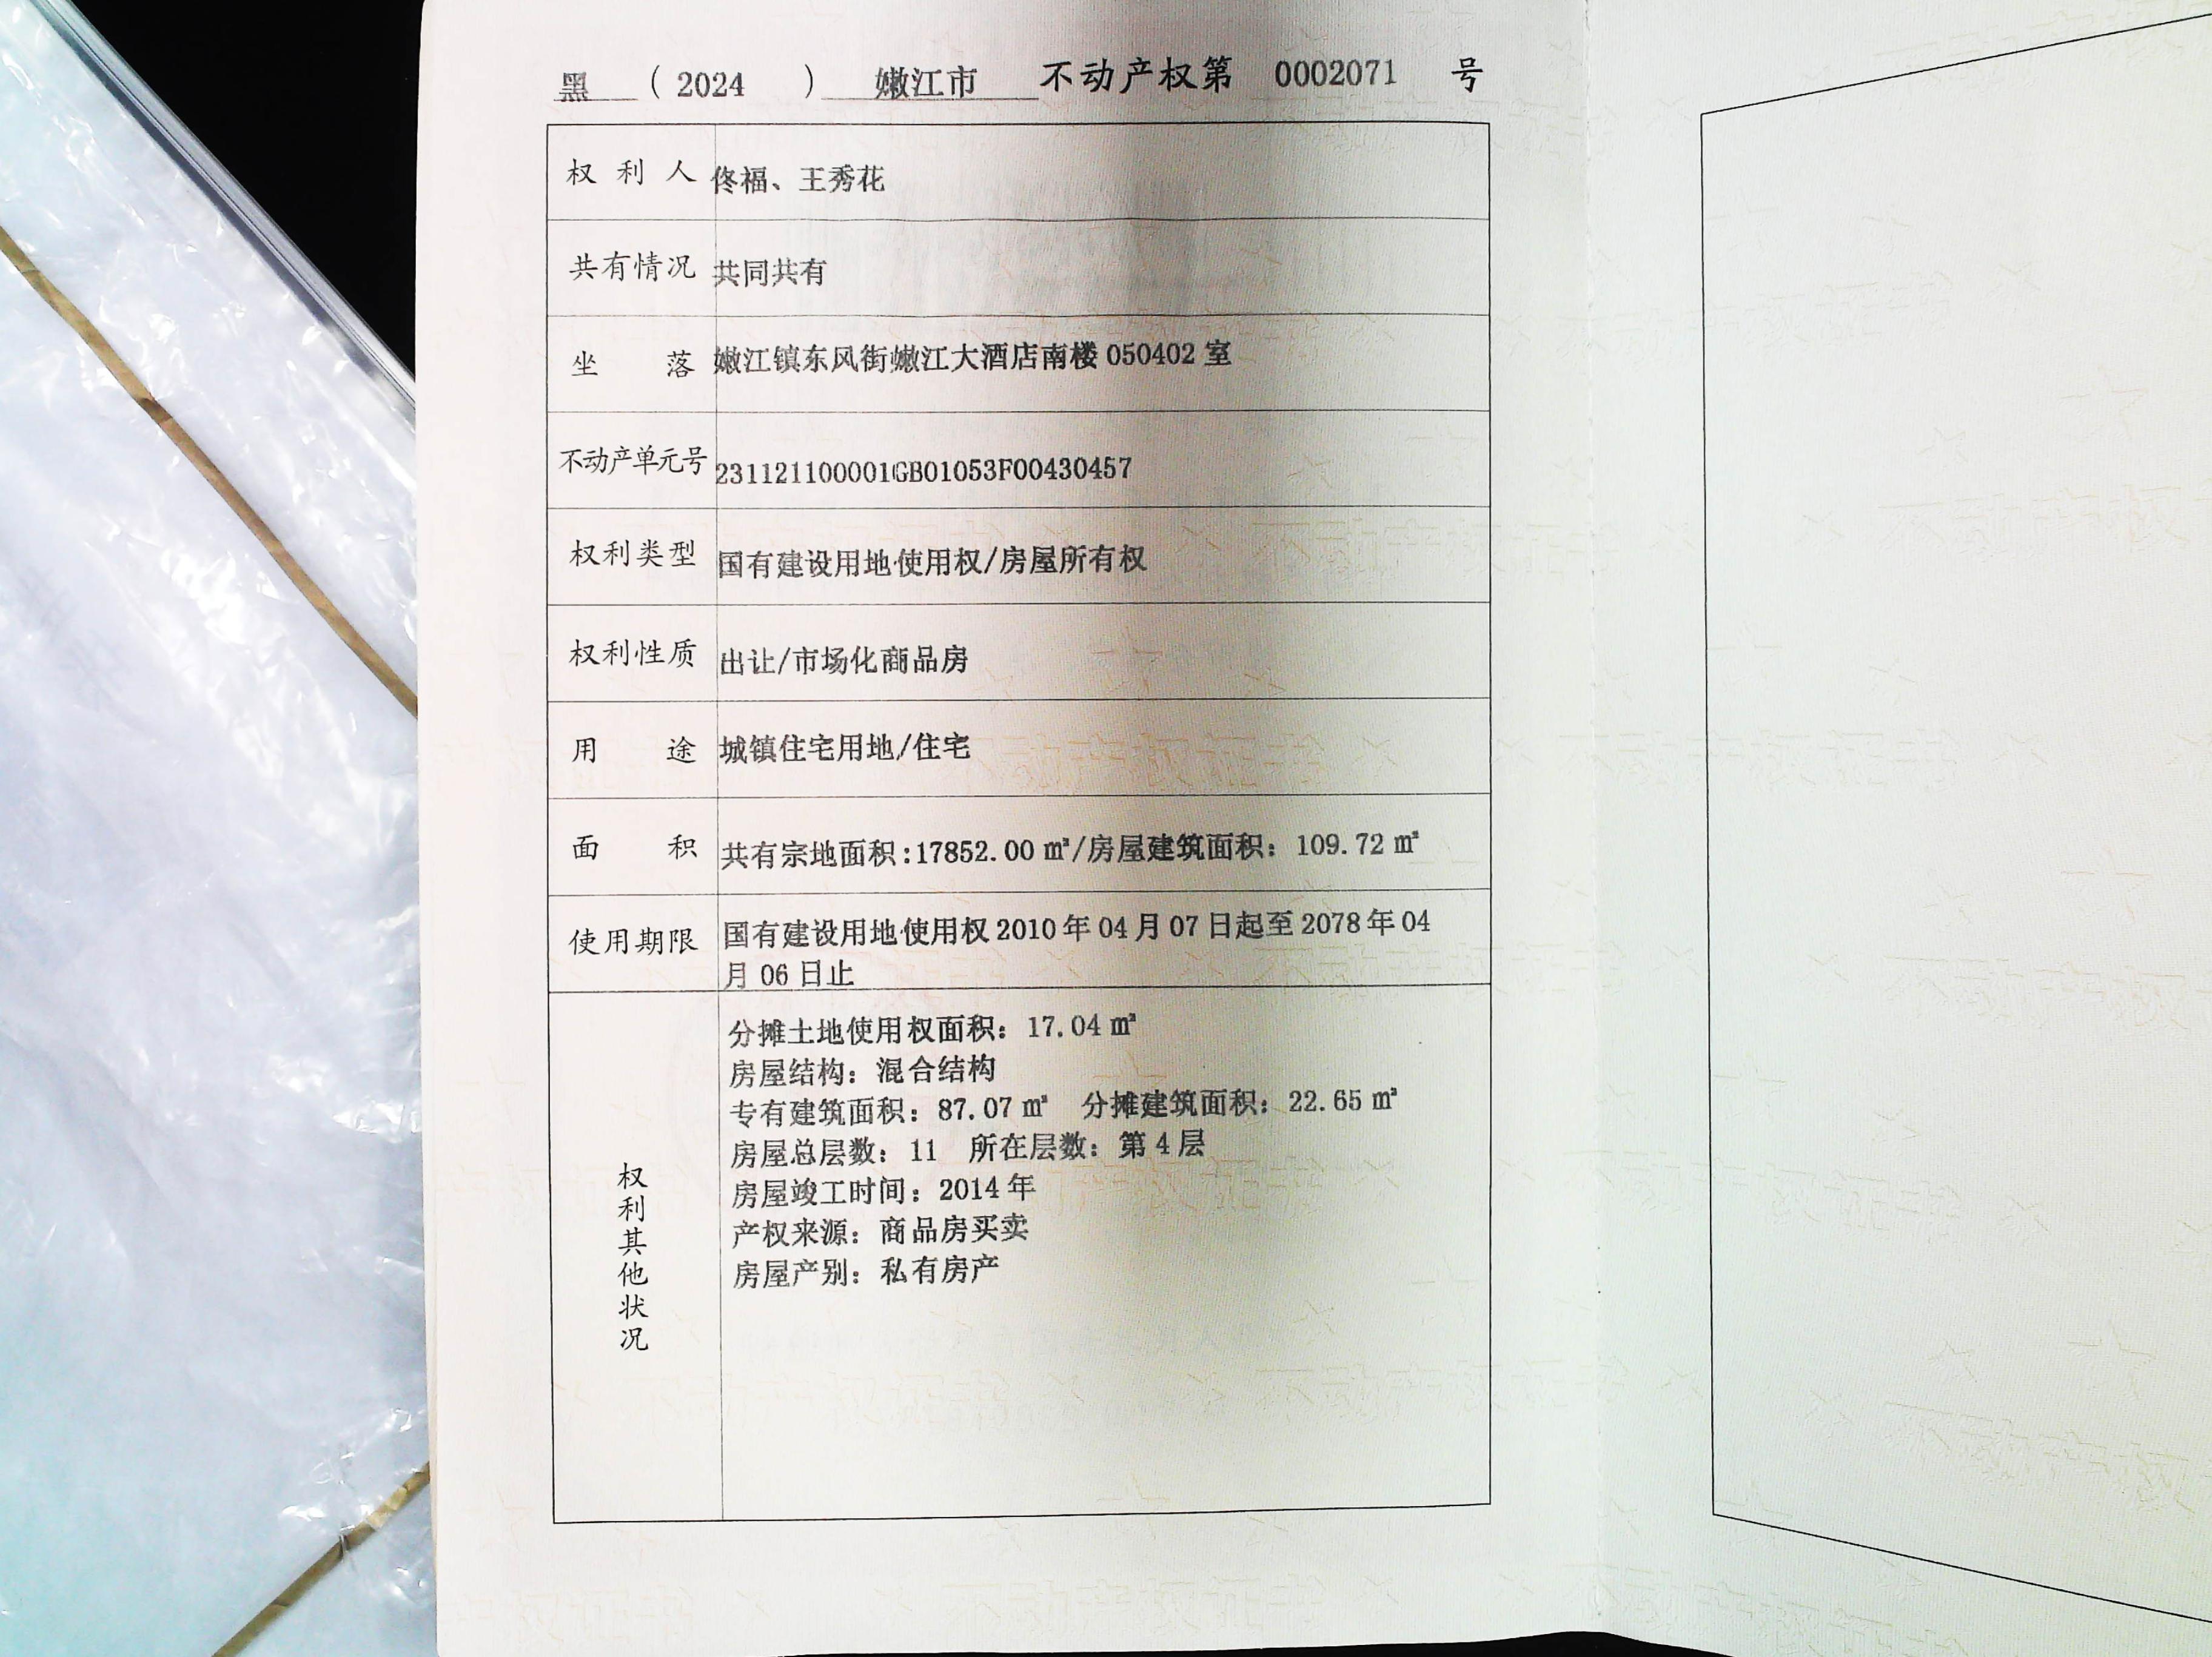 黑 （ 2024 ） 嫩江市 不动产权第 0002071 号
权利人 佟福、王秀花
共有情况 共同共有
坐落 嫩江镇东风街嫩江大酒店南楼 050402 室
不动产单元号 231121100001GB01053F00430457
权利类型 国有建设用地使用权/房屋所有权
权利性质 出让/市场化商品房
用途 城镇住宅用地/住宅
面积 共有宗地面积:17852.00 ㎡/房屋建筑面积：109.72 ㎡
使用期限 国有建设用地使用权 2010 年 04 月 07 日起至 2078 年 04
月 06 日止
权利其他状况
分摊土地使用权面积：17.04 ㎡
房屋结构：混合结构
专有建筑面积：87.07 ㎡ 分摊建筑面积：22.65 ㎡
房屋总层数：11 所在层数：第 4 层
房屋竣工时间：2014 年
产权来源：商品房买卖
房屋产别：私有房产